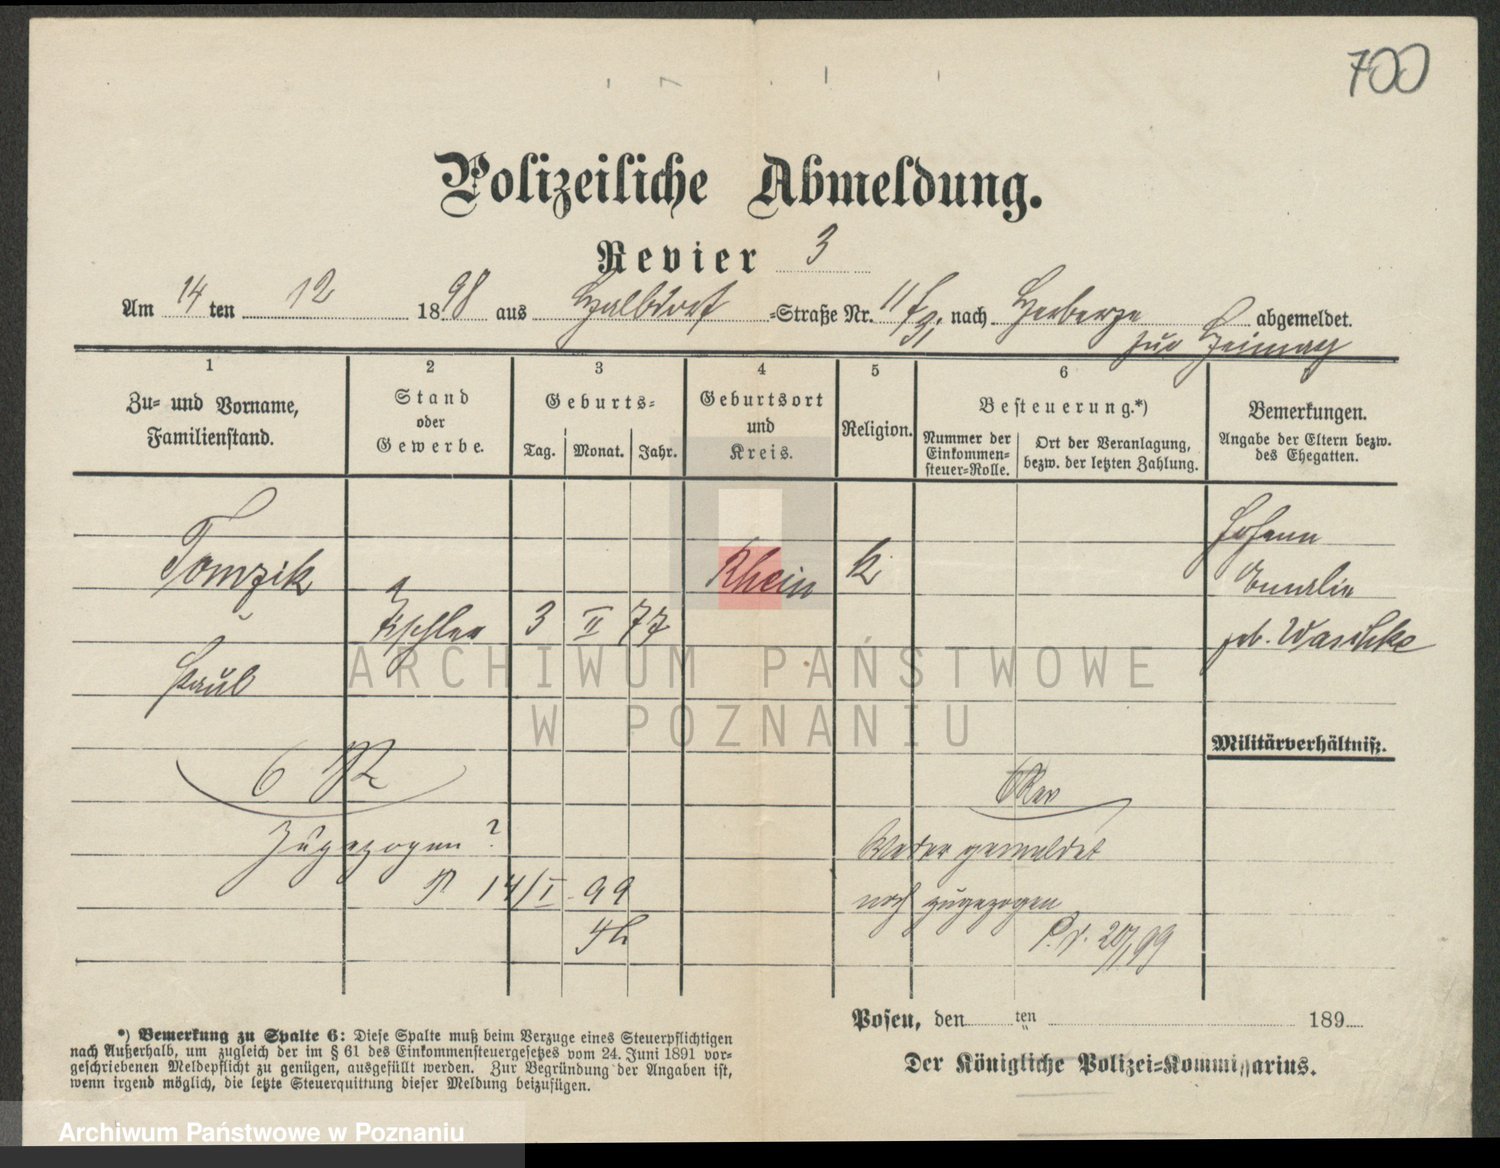 700
Polizeiliche Abmeldung.
Revier 3
Am 14 ten 12 1898 aus Halbdorf -Straße Nr. 11 nach Herberge abgemeldet.
zur Heimat
1 2 3 4 5 6
Zu- und Vorname, Familienstand.
Stand oder Gewerbe.
Geburts-
Tag. Monat. Jahr.
Geburtsort und Kreis.
Religion.
Besteuerung.*)
Nummer der Einkommen-steuer-Rolle.
Ort der Veranlagung, bezw. der letzten Zahlung.
Bemerkungen.
Angabe der Eltern bezw. des Ehegatten.
Johann
Tomzik Rhein k Emilie
Tischler 3 II 77 geb. Waschke
Paul
Militärverhältniß.
6 R
6 Rev
Zugezogen?
Weder gemeldet
P 14/I 99
noch zugezogen
P. V. 20/1 99
Posen, den ten 189
Der Königliche Polizei-Kommissarius.
*) Bemerkung zu Spalte 6: Diese Spalte muß beim Verzuge eines Steuerpflichtigen
nach Außerhalb, um zugleich der im § 61 des Einkommensteuergesetzes vom 24. Juni 1891 vor-
geschriebenen Meldepflicht zu genügen, ausgefüllt werden. Zur Begründung der Angaben ist,
wenn irgend möglich, die letzte Steuerquittung dieser Meldung beizufügen.
ARCHIWUM PAŃSTWOWE
W POZNANIU
Archiwum Państwowe w Poznaniu